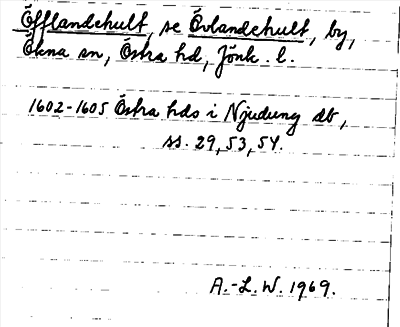 Öfflandehult, se Övlandehult, by,
Ökna sn, Östra hd, Jönk. l.
1602-1605 Östra hds i Njudung db,
ss. 29, 53, 54.
A.-L. W. 1969.